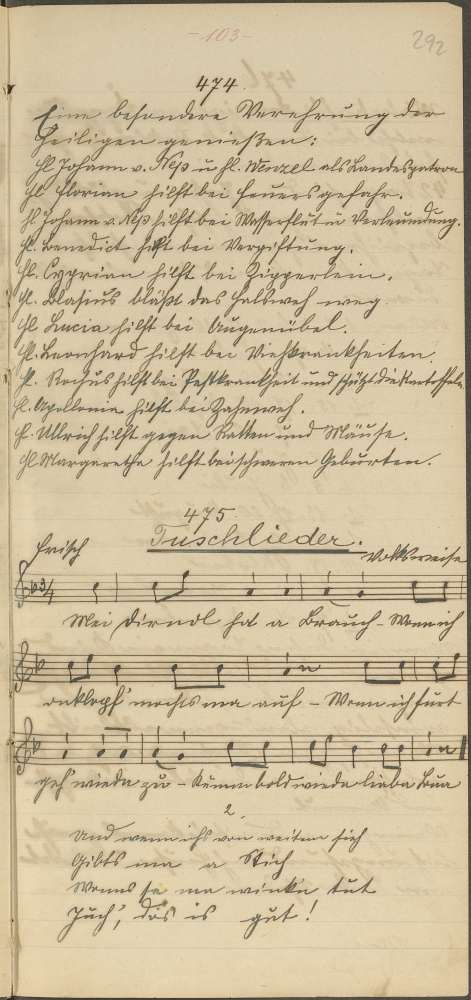 -103-
292
474.
Eine besondere Verehrung der
Heiligen genießen:
Hl Johann v. Nep u hl. Wenzel als Landespatron
Hl. Florian hilft bei Feuersgefahr.
Hl Johann v. Nep hilft bei Wasserflut u Verleumdung.
Hl. Benedict hilft bei Vergiftung.
Hl. Cyprian hilft bei Zipperlein.
Hl. Blasius bläßt das Halsweh weg.
Hl Lucia hilft bei Augenübel.
Hl. Leonhard hilft bei Viehkrankheiten.
Hl. Rochus hilft bei Pestkrankheit und schützt die Kartoffeln
Hl. Apollonia hilft bei Zahnweh.
Hl. Ullrich hilft gegen Ratten und Mäuse.
Hl Margarethe hilft bei schweren Geburten.
475.
Tuschlieder.
Frisch
Volksweise
3/4
Mei Dirndl hat a Brauch - Wenn ich
onklopf' mochts ma auf - Wenn ich furt
geh' wieda zu - Kumm bold wieda lieba Bua
2.
Und wenn ichs von weitem sieh
Gibts ma a Stich
Wenns so ma winkn tut
Juch', dös is gut!